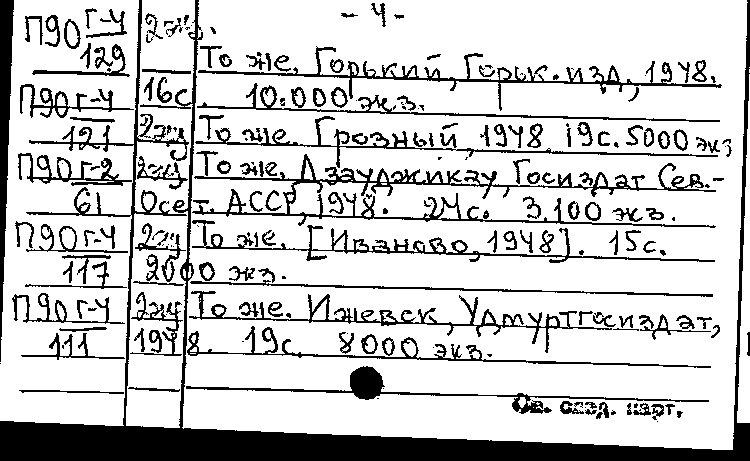 - 4 -
П90 Г-4/129 2экз. То же. Горький, Горьк. изд., 1948.
16с. 10.000 экз.
П90 Г-4/121 2экз То же. Грозный, 1948. 19с. 5000 экз
П90 Г-2/61 2экз То же. Дзауджикау, Госиздат Сев.-
Осет. АССР, 1948. 24с. 3.100 экз.
П90 Г-4/117 2экз То же. [Иваново, 1948]. 15с.
2000 экз.
П90 Г-4/111 2экз То же. Ижевск, Удмуртгосиздат,
1948. 19с. 8000 экз.
См. след. карт.